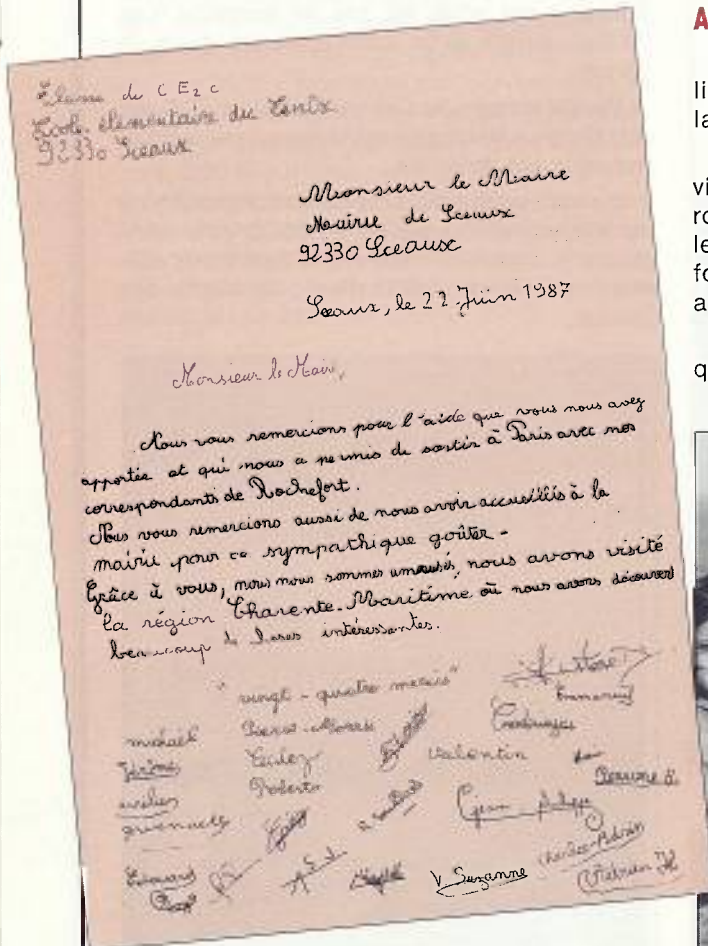 Classe de CE2 C
Ecole élémentaire du
92330 Sceaux
Monsieur le Maire
Mairie de Sceaux
92330 Sceaux
Sceaux, le 22 Juin 1987
Monsieur le Maire,
Nous vous remercions pour l'aide que vous nous avez
apportée et qui nous a permis de sortir à Paris avec nos
correspondants de Rochefort.
Nous vous remercions aussi de nous avoir accueillis à la
mairie pour ce sympathique goûter.
Grâce à vous, nous nous sommes amusés, nous avons visité
la région Charente-Maritime où nous avons découvert
beaucoup de intéressantes.
"vingt-quatre mercis"
Emmanuel
mickaël
Pierre-
Jérôme
Valentin
Perrine
aurélien
Roberto
gwennaelle
jean philippe
Edouard
V Suzanne
Charles-Adrien
Adrien H
A
li
la
vi
ro
le
fo
a
q